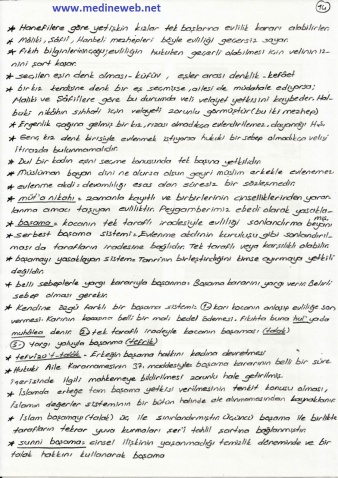 www.medineweb.net
14
* Hanefilere göre yetişkin kızlar tek başlarına evlilik kararı alabilirler
* Maliki, Şafii, Hanbeli mezhepleri böyle evliliği geçersiz sayar.
* Fıkıh bilginlerinin çoğu; evliliğin hukuken geçerli olabilmesi için velinin iz-
nini şart koşar.
* seçilen eşin denk olması - küfüv, eşler arası denklik - kefaet
* bir kız kendisine denk bir eş seçmişse, ailesi de müdahale ediyorsa;
Maliki ve Şafiilere göre bu durumda veli velayet yetkisini kaybeder. Hal-
buki nikahın sıhhati için velayeti zorunlu görmüştür (bu iki mezhep)
* Ergenlik çağına gelmiş bir kız, rızası olmadıkça evlendirilemez. dayanağı
* Genç kız denk birisiyle evlenmek istiyorsa hukuki bir sebep olmadıkça velisi
itirazda bulunmamalıdır.
* Dul bir kadın eşini seçme konusunda tek başına yetkilidir.
* Müslüman bayan dini ne olursa olsun gayri müslim erkekle evlenemez
* evlenme akdi = devamlılığı esas alan süresiz bir sözleşmedir.
* müt'a nikahı = zamanla kayıtlı ve birbirlerinin cinselliklerinden yarar-
lanma amacı taşıyan evliliktir. Peygamberimiz ebedi olarak yasakla-
mış.
* boşama = kocanın tek taraflı iradesiyle evliliği sonlandırma beyanı
* serbest boşama sistemi = Evlenme akdinin kuruluşu gibi sonlandırıl-
ması da tarafların iradesine bağlıdır. Tek taraflı veya karşılıklı olabilir.
* boşamayı yasaklayan sistem = Tanrı'nın birleştirdiğini kimse ayırmaya yetkili
değildir.
* belli sebeplerle yargı kararıyla boşanma = Boşama kararını yargı verir. Belirli
sebep olması gerekir.
* Kendine özgü farklı bir boşama sistemi = 1) karı kocanın anlaşıp evliliğe son
vermesi: Karının kocasına belli bir mali bedel ödemesi. Fıkıhta buna hul' ya da
muhalea denir. 2) tek taraflı iradeyle kocanın boşaması (talak)
3) Yargı yoluyla boşanma (tefrik)
* tefvizu't-talak = Erkeğin boşama hakkını kadına devretmesi
* Hukuki Aile Kararnamesinin maddesiyle boşama kararının belli bir süre
içerisinde ilgili mahkemeye bildirilmesi zorunlu hale getirilmiş.
* İslamda erkeğe tam boşama yetkisi verilmesinin tenkit konusu olması,
İslamın değerler sisteminin bir bütün halinde ele alınmamasından kaynaklanır
* İslam boşamayı (talak) üç ile sınırlandırmıştır. Üçüncü boşama ile birlikte
tarafların tekrar yuva kurmaları şer'i tahlil şartına bağlanmıştır.
* sunni boşama = cinsel ilişkinin yaşanmadığı temizlik döneminde ve bir
talak hakkını kullanarak boşama